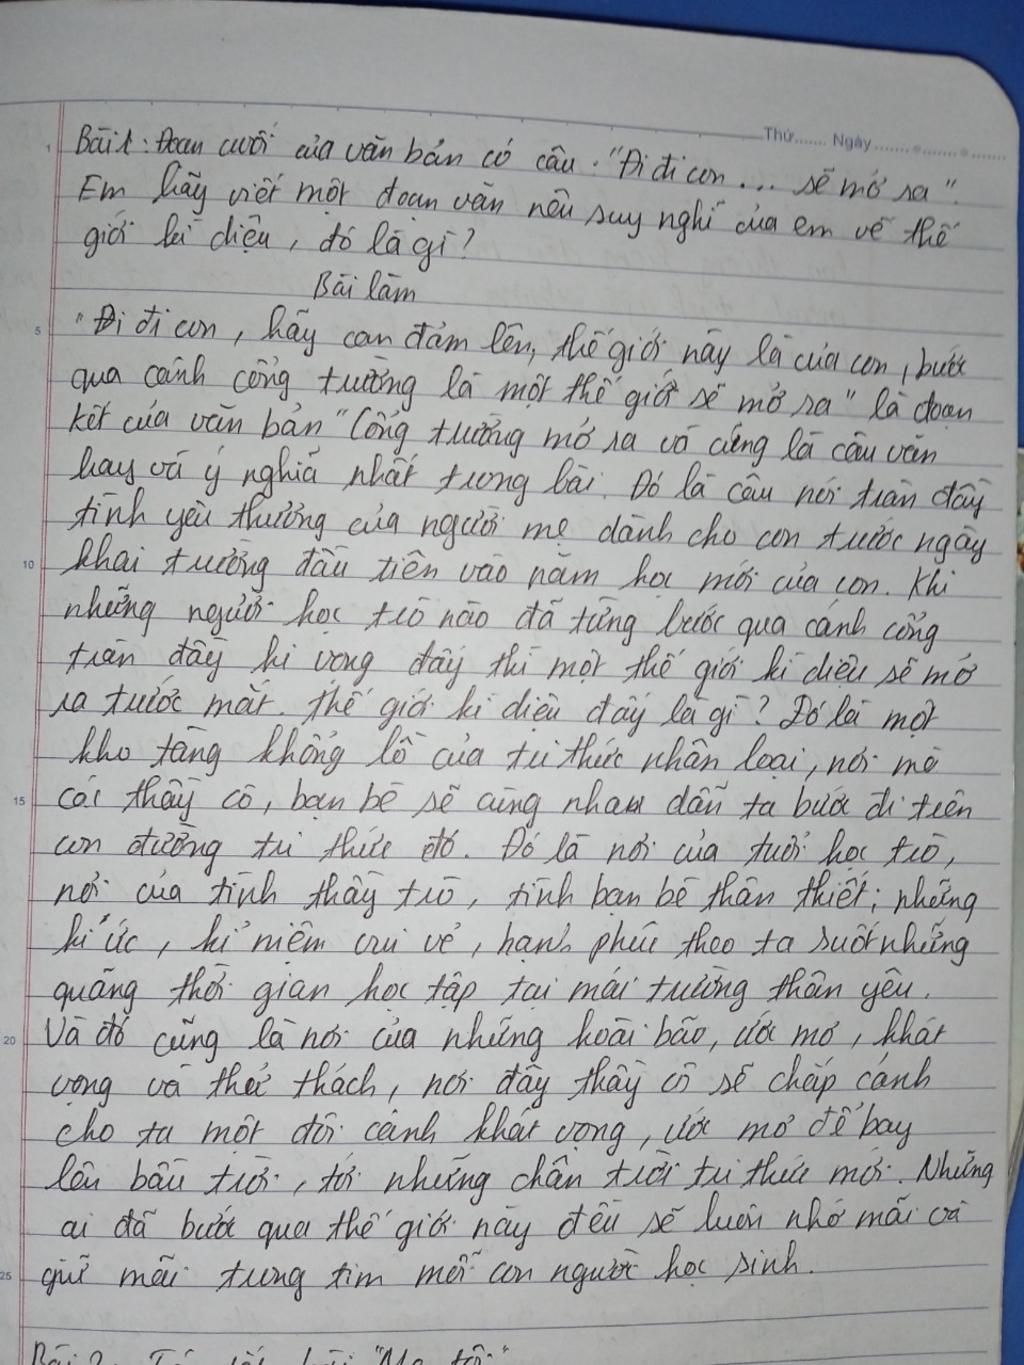 Thứ....... Ngày...................
Bài 1: Đoạn cuối của văn bản có câu: "Đi đi con ... sẽ mở ra".
Em hãy viết một đoạn văn nêu suy nghĩ của em về thế
giới kì diệu, đó là gì?
Bài làm
"Đi đi con, hãy can đảm lên, thế giới này là của con, bước
qua cánh cổng trường là một thế giới sẽ mở ra" là đoạn
kết của văn bản "Cổng trường mở ra và cũng là câu văn
hay và ý nghĩa nhất trong bài. Đó là câu nói tràn đầy
tình yêu thương của người mẹ dành cho con trước ngày
khai trường đầu tiên vào năm học mới của con. Khi
những người học trò nào đã từng bước qua cánh cổng
tràn đầy kì vọng đấy thì một thế giới kì diệu sẽ mở
ra trước mắt. Thế giới kì diệu đấy là gì? Đó là một
kho tàng khổng lồ của tri thức nhân loại, nơi mà
các thầy cô, bạn bè sẽ cùng nhau dẫn ta bước đi trên
con đường tri thức đó. Đó là nơi của tuổi học trò,
nơi của tình thầy trò, tình bạn bè thân thiết; những
kí ức, kỉ niệm vui vẻ, hạnh phúc theo ta suốt những
quãng thời gian học tập tại mái trường thân yêu.
Và đó cũng là nơi của những hoài bão, ước mơ, khát
vọng và thử thách, nơi đấy thầy cô sẽ chắp cánh
cho ta một đôi cánh khát vọng, ước mơ để bay
lên bầu trời, tới những chân trời tri thức mới. Những
ai đã bước qua thế giới này đều sẽ luôn nhớ mãi và
giữ mãi trong tim mỗi con người học sinh.